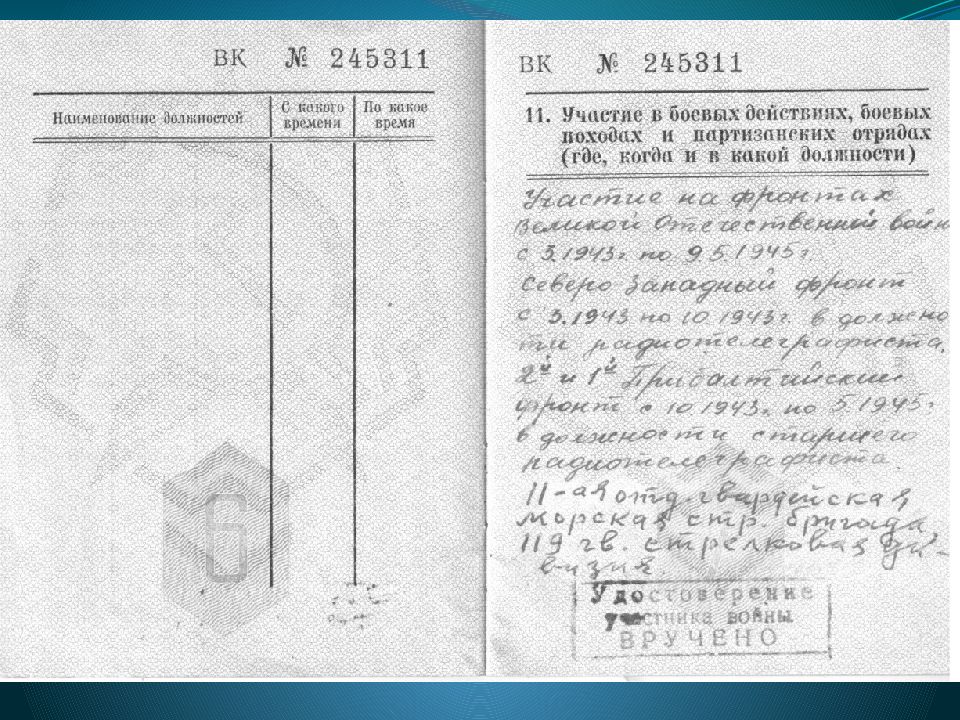 ВК № 245311
Наименование должностей
С какого времени
По какое время
6
ВК № 245311
11. Участие в боевых действиях, боевых
походах и партизанских отрядах
(где, когда и в какой должности)
Участие на фронтах
Великой Отечественный войн
с 3.1943г по 9 5.1945г
Северо Западный фронт
с 3.1943 по 10 1943г. в должно
ти радиотелеграфиста.
2й и 1й Прибалтийский
фронт с 10 1943г. по 5.1945г
в должности старшего
радиотелеграфиста.
11-ая отд. гвардейская
морская стр. бригада,
119 гв. стрелковая ди-
визия.
Удостоверение
участника войны
ВРУЧЕНО